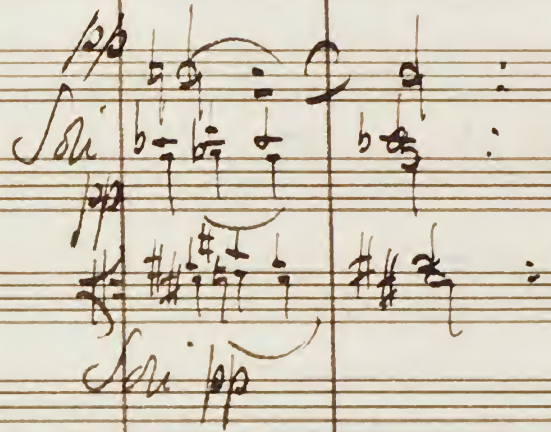 pp
Soli
pp
Soli pp